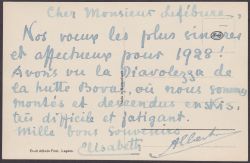 Cher Monsieur Lefébure,
Nos vœux les plus sincères
et affectueux pour 1928!
Avons vu la Diavolezza de
la hutte Boval, où nous sommes
montés et descendus en skis,
très difficile et fatigant.
Mille bons Souvenirs
Elisabeth Albert